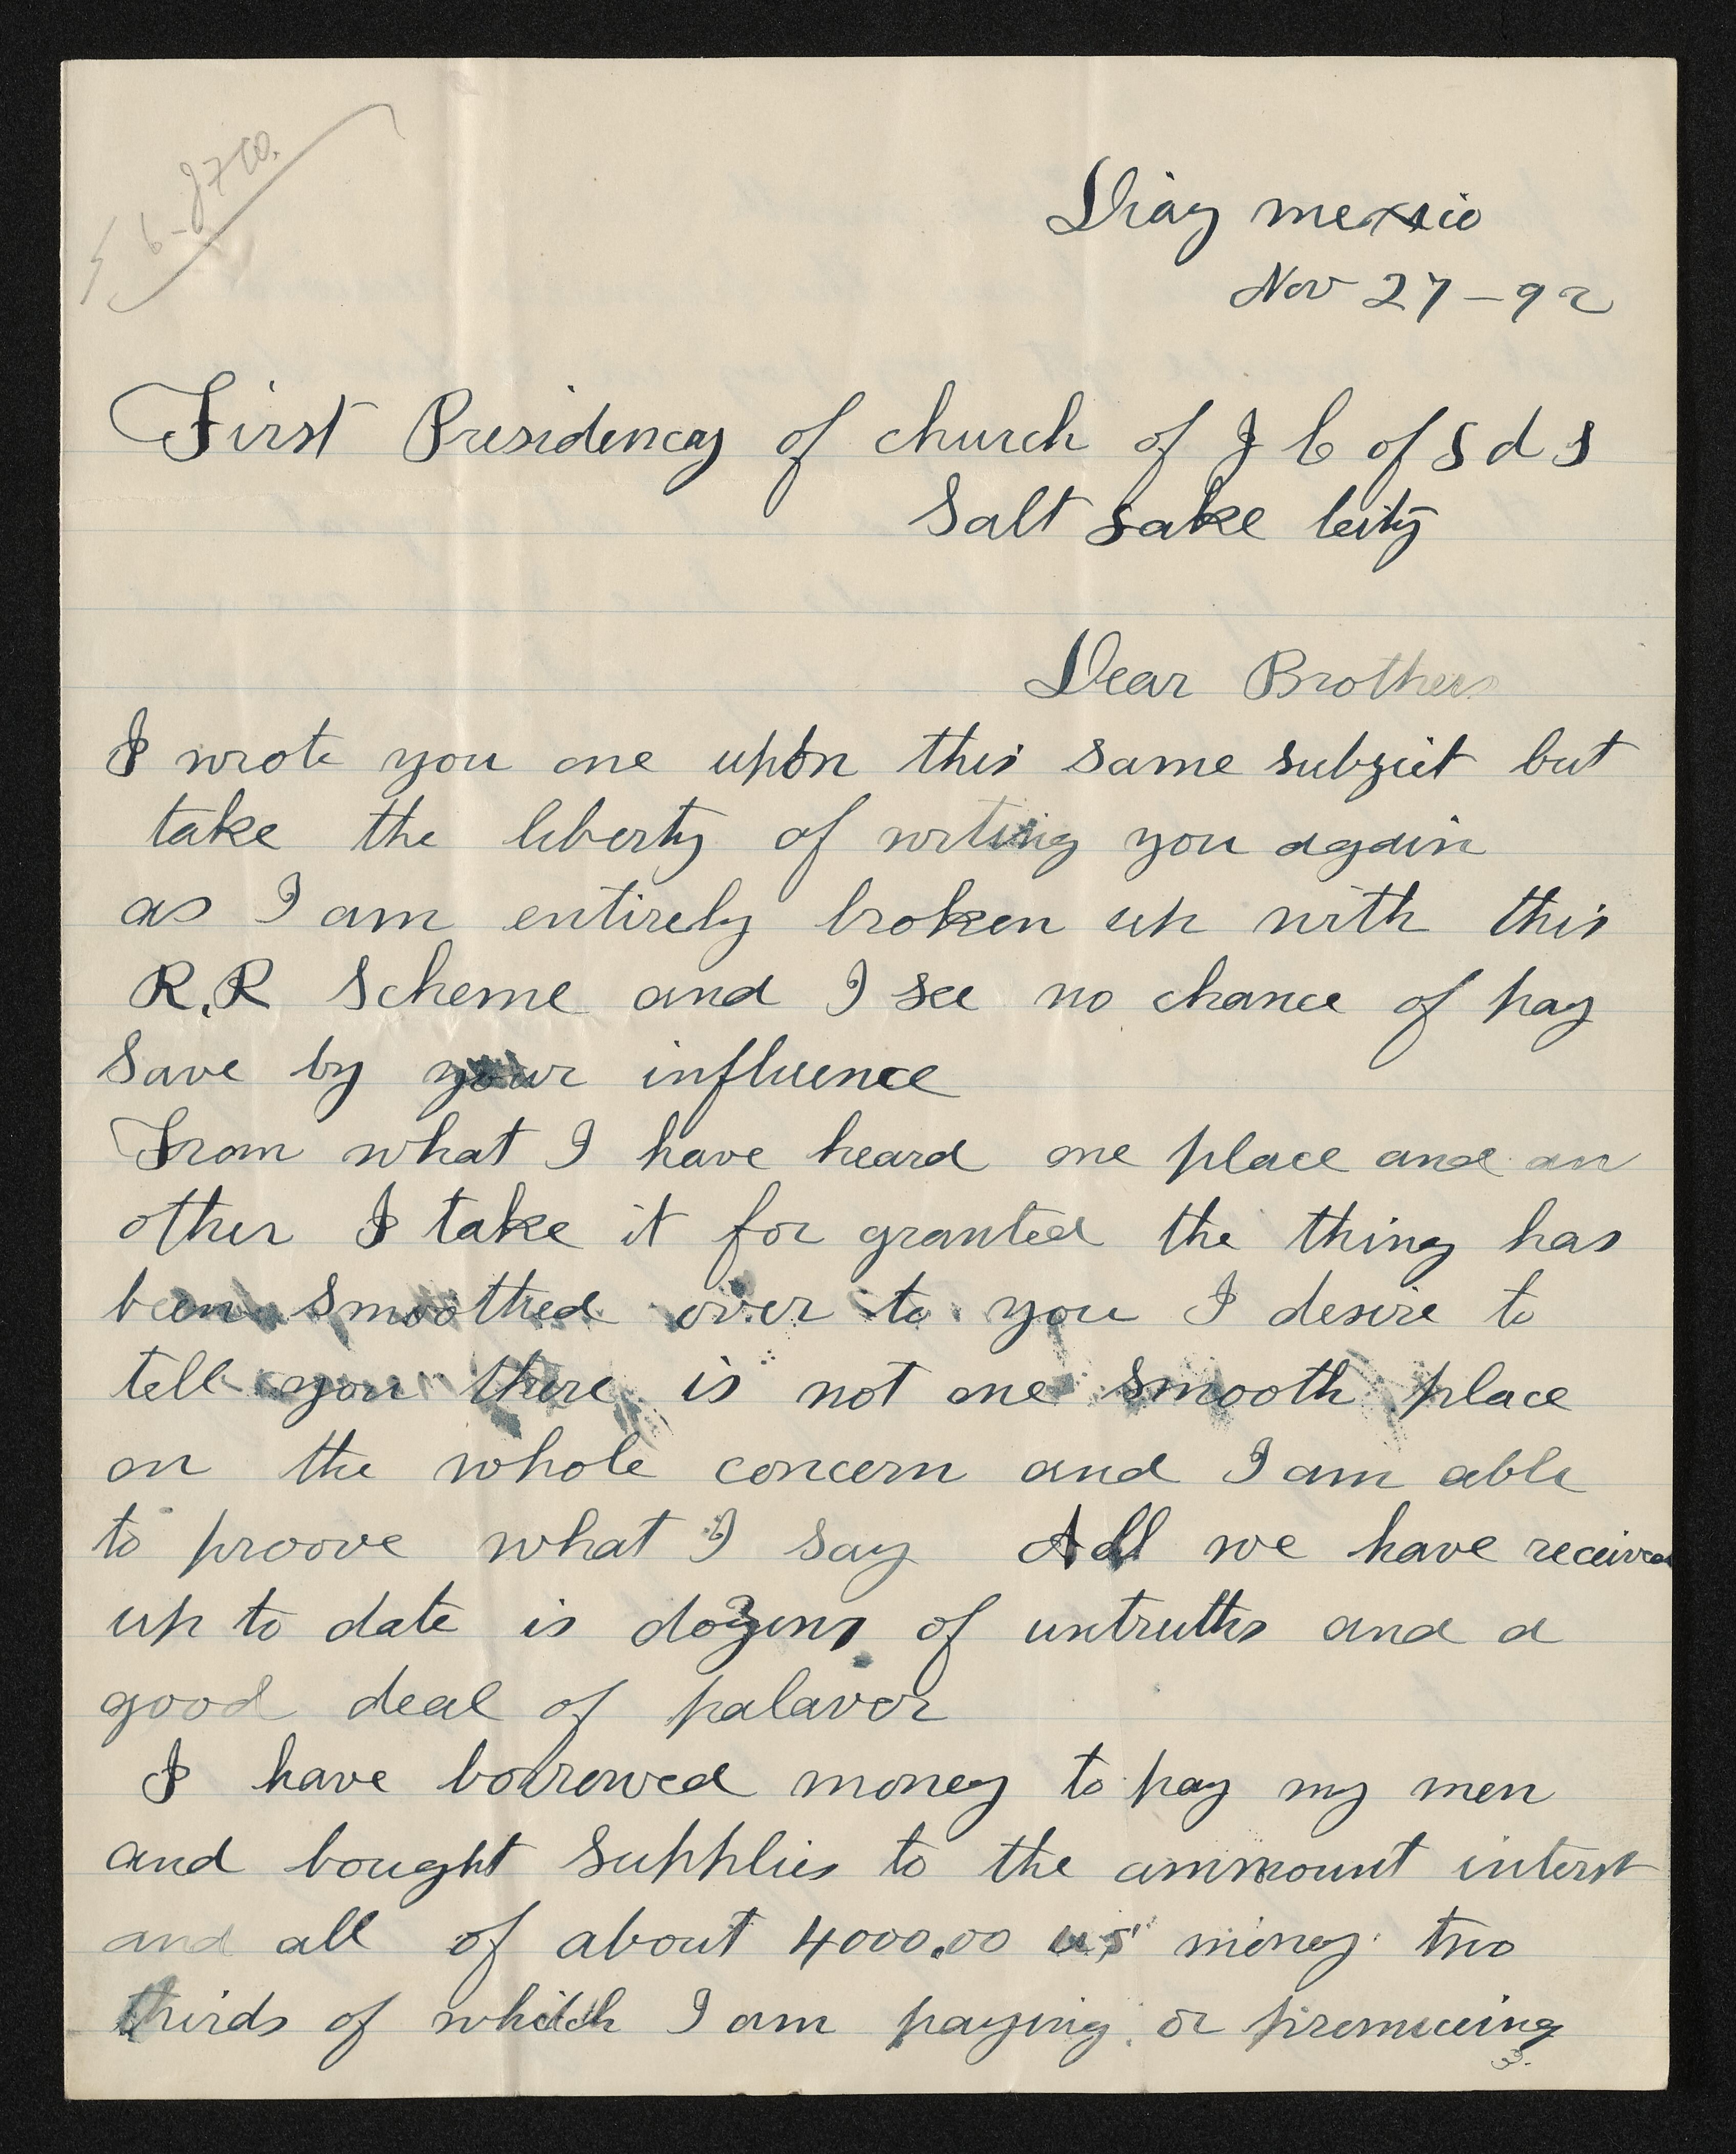 Diaz mexico
Nov 27 - 92
First Presidency of church of J C of L d S
Salt Lake City
Dear Brothers
I wrote you one upon this same subjict but
take the liberty of writing you again
as I am entirely broken up with this
R.R Scheme and I see no chance of pay
Save by your influence
From what I have heard one place and an
other I take it for granted the thing has
been smoothed over to you I desire to
tell you there is not one smooth place
on the whole concern and I am able
to proove what I say All we have received
up to date is dozens of untruths and a
good deal of palavor
I have borrowed money to pay my men
and bought supplies to the ammount interst
and all of about 4000.00 us money two
thirds of which I am paying or